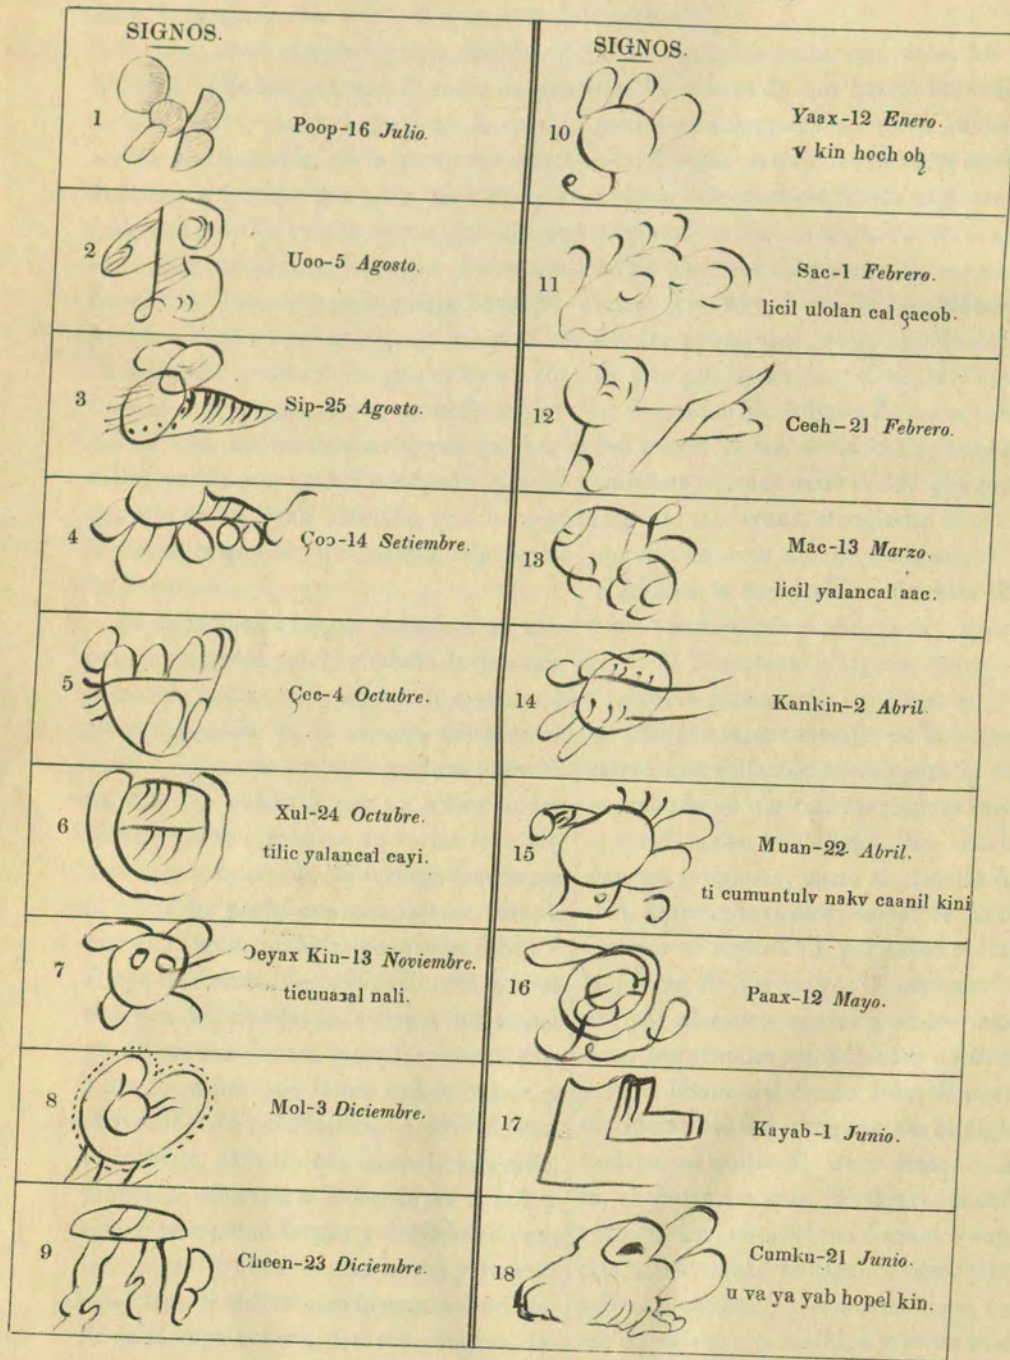 SIGNOS.
1 Poop-16 Julio.
2 Uoo-5 Agosto.
3 Sip-25 Agosto.
4 Çoɔ-14 Setiembre.
5 Çec-4 Octubre.
6 Xul-24 Octubre.
tilic yalancal cayi.
7 Ɔeyax Kin-13 Noviembre.
ticuuaɔal nali.
8 Mol-3 Diciembre.
9 Cheen-23 Diciembre.
SIGNOS.
10 Yaax-12 Enero.
v kin hoch
11 Sac-1 Febrero.
licil ulolan cal çacob.
12 Ceeh-21 Febrero.
13 Mac-13 Marzo.
licil yalancal aac.
14 Kankin-2 Abril.
15 Muan-22. Abril.
ti cumuntulv nakv caanil kini
16 Paax-12 Mayo.
17 Kayab-1 Junio.
18 Cumku-21 Junio.
u va ya yab hopel kin.